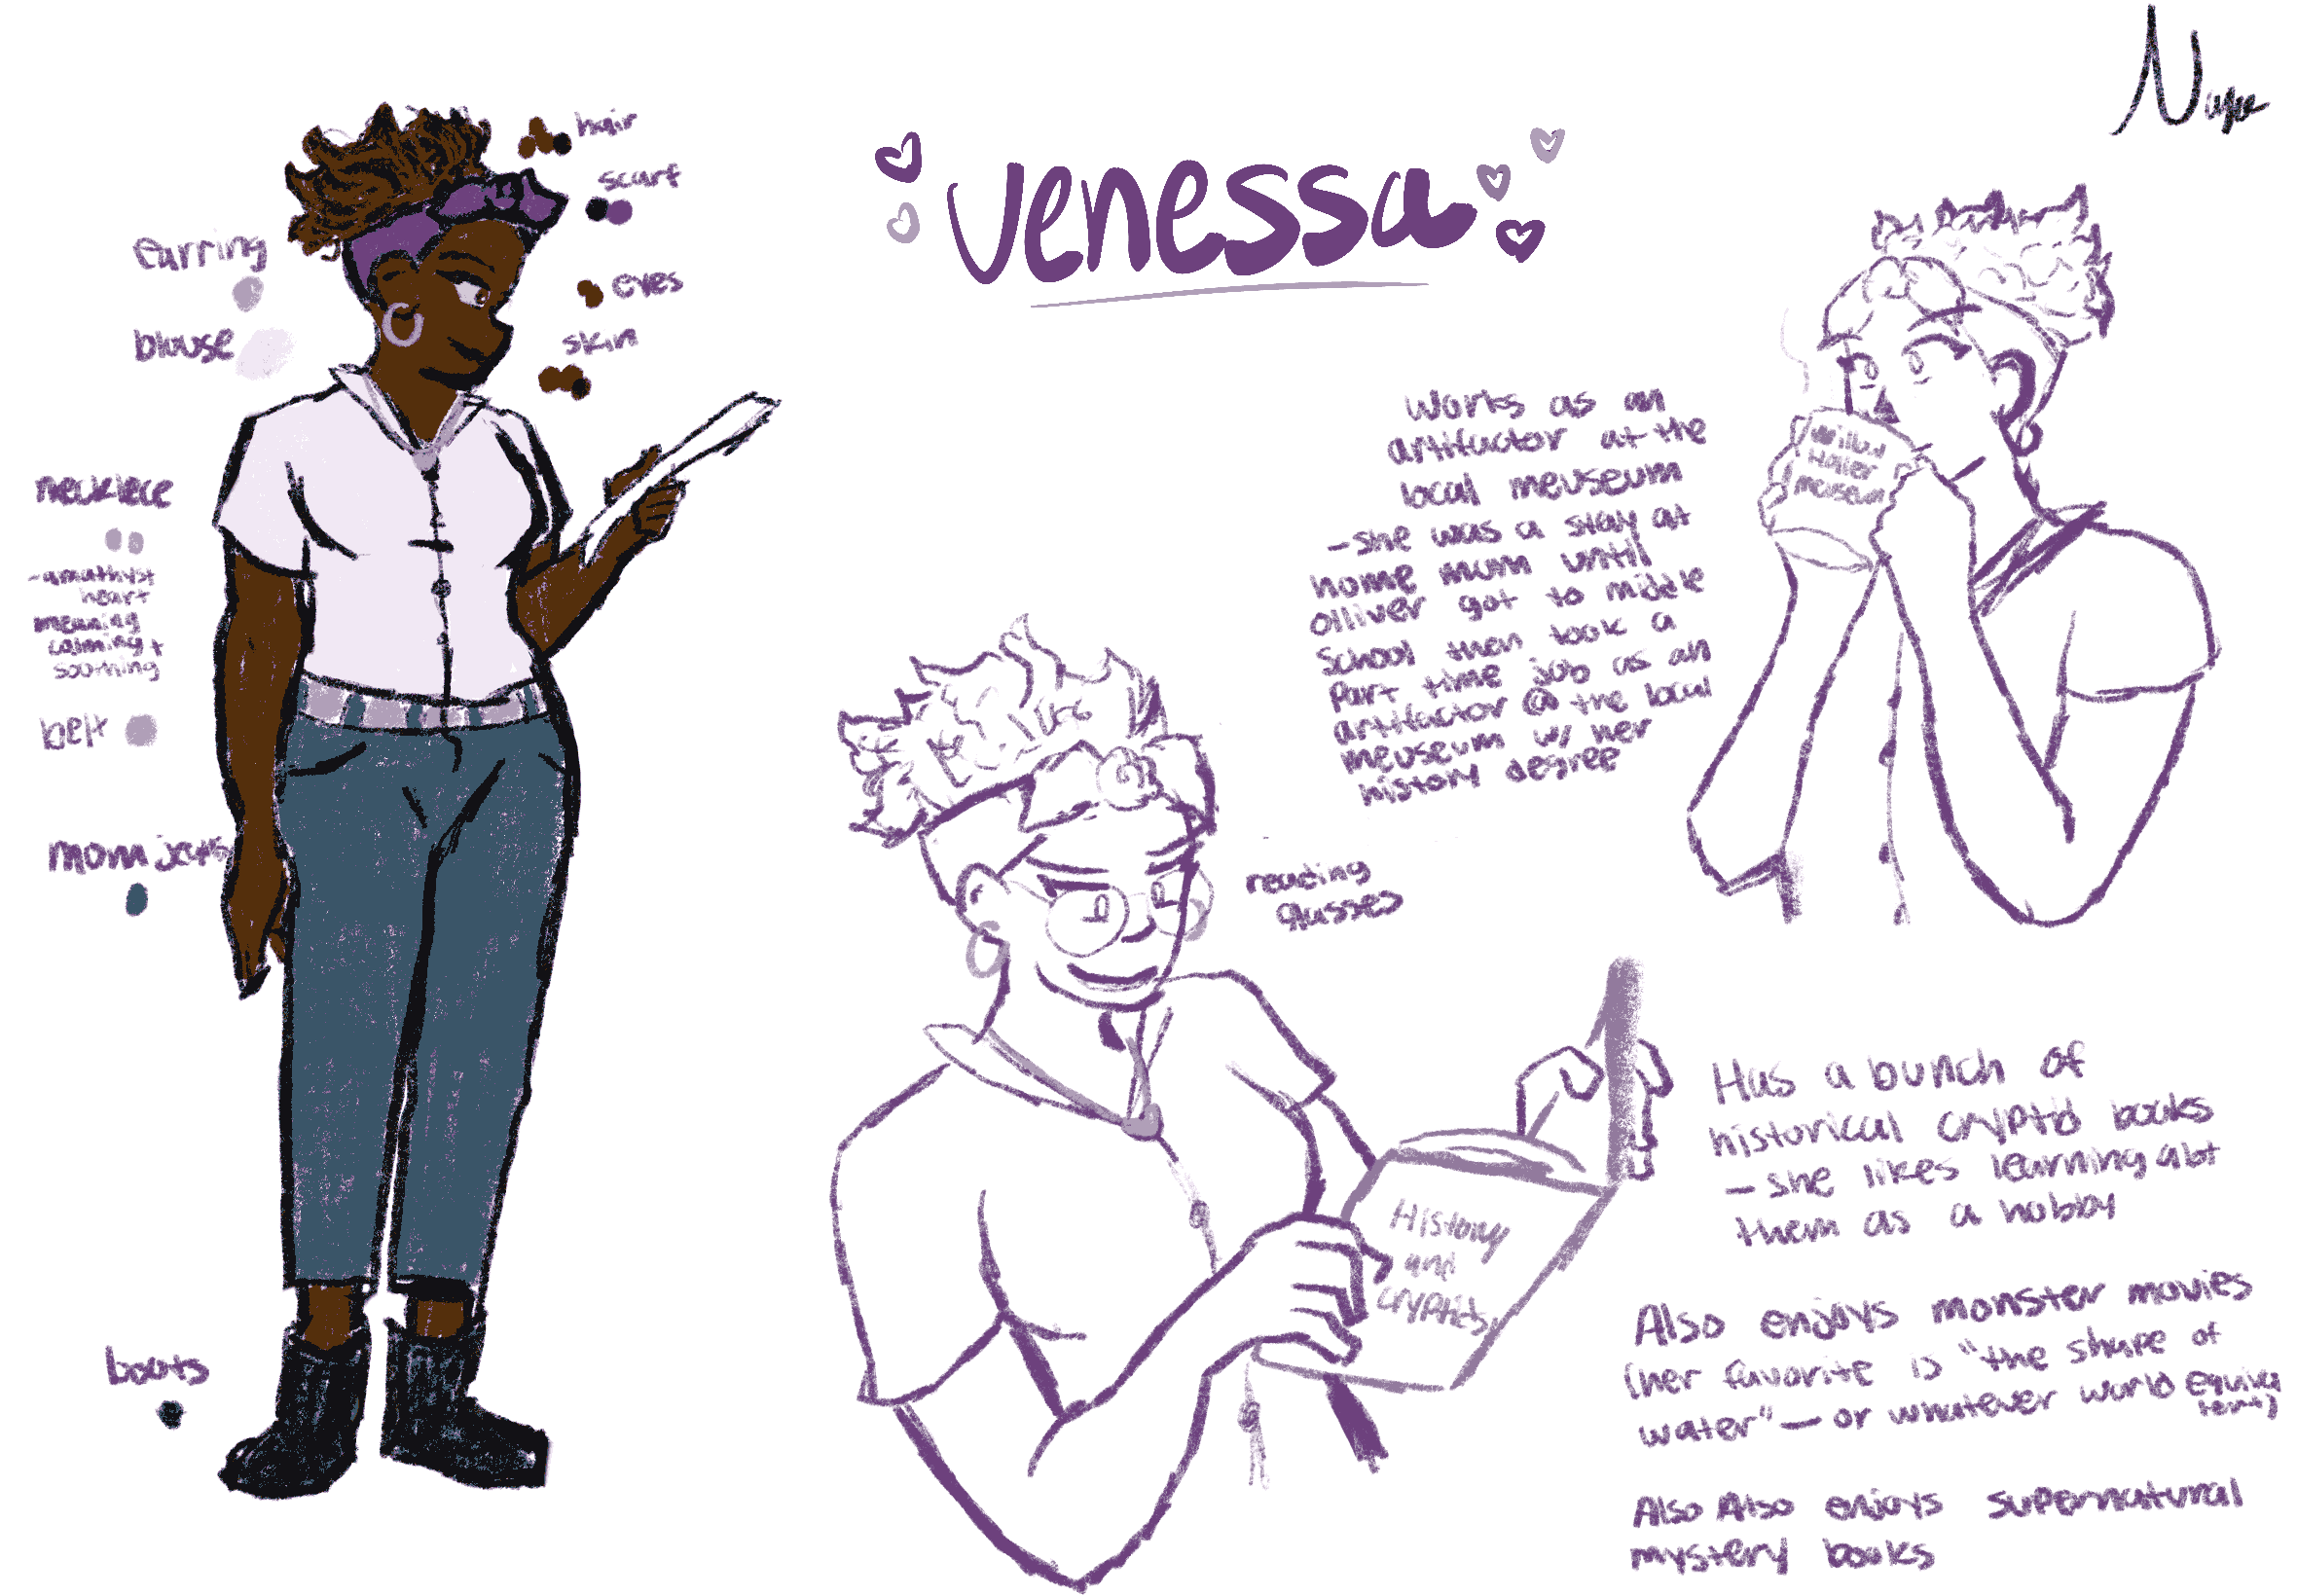 Venessa
hair
scarf
earring
eyes
blouse
skin
necklece
-amathyst
heart
meaning
calming +
soothing
belt
mom jeans
boots
works as an
artifactor at the
local meuseum
-she was a stay at
home mum until
olliver got to middle
school then took a
part time job as an
artifactor @ the local
meuseum w/ her
history degree
Holler
meuseum
reading
glasses
History
and
cryptids
Has a bunch of
historical cryptid books
- she likes learning abt
them as a hobby
Also enjoys monster movies
(her favorite is "the shape of
water" - or whatever world
Also Also enjoys supernatural
mystery books